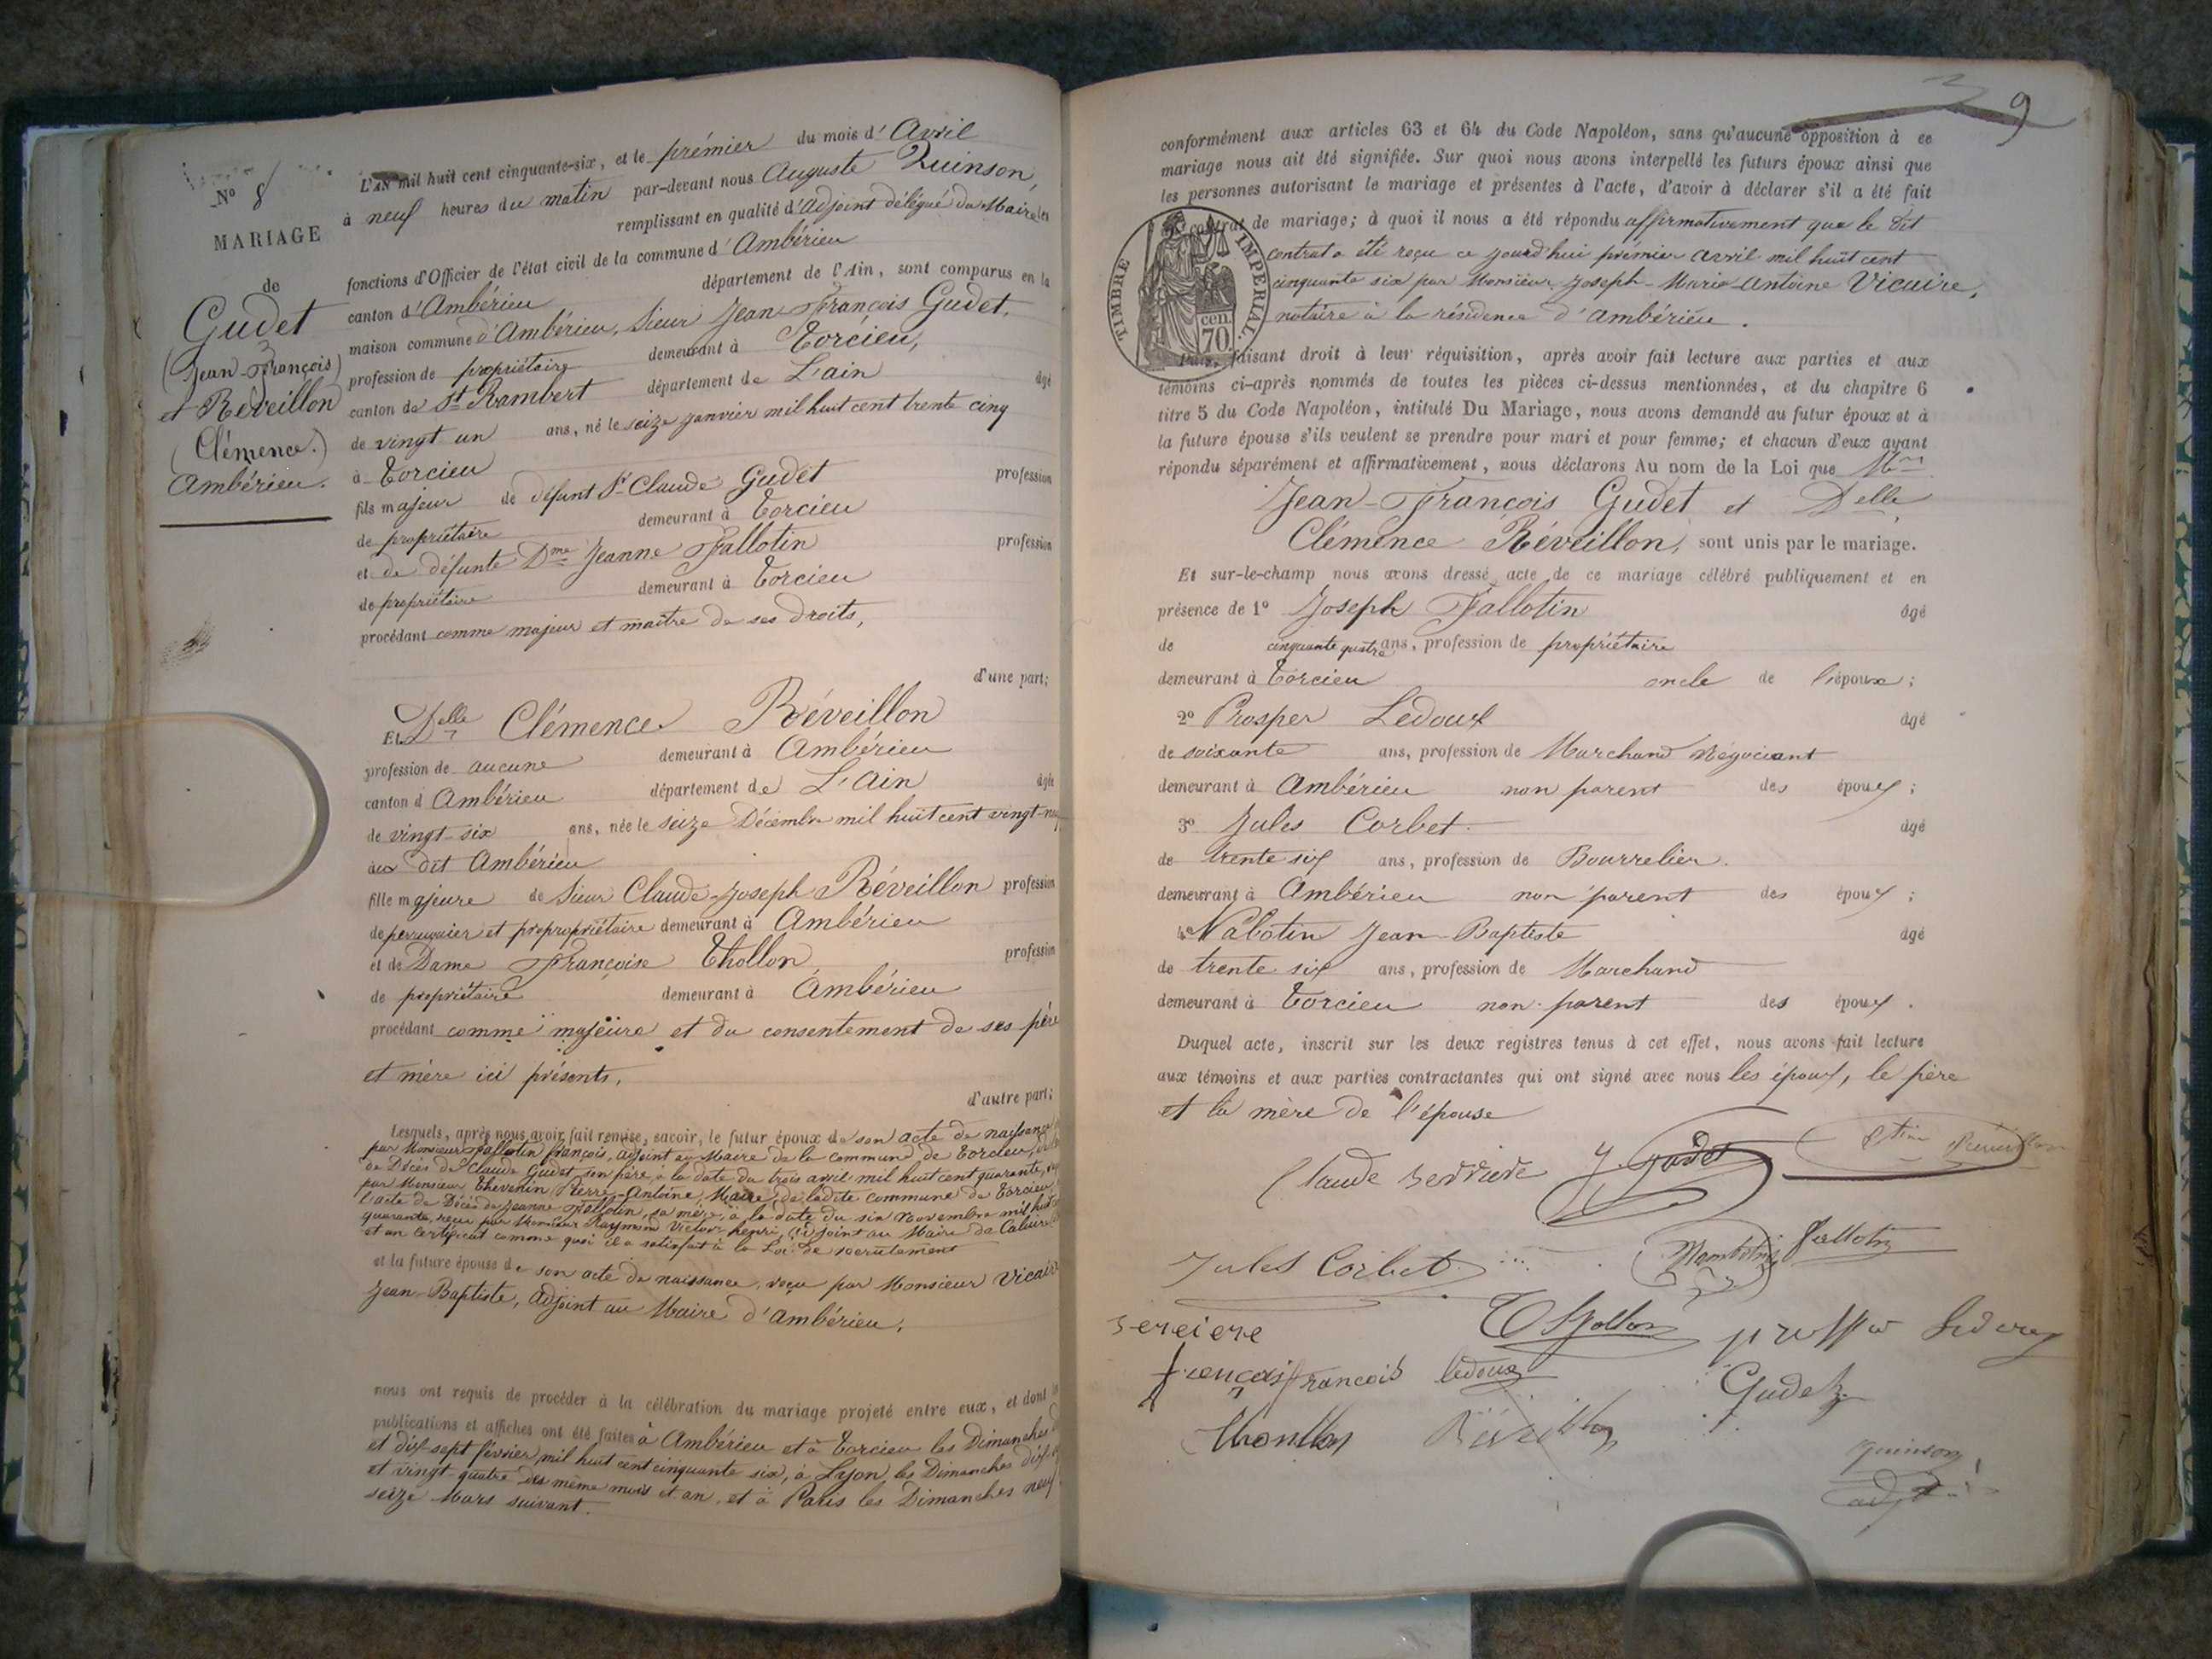 N° 8
MARIAGE
de
Gudet
(Jean-François)
et Réveillon
(Clémence.)
Ambérieu.
L'AN mil huit cent cinquante-six, et le prémier du mois d' Avril
à neuf heures du matin par-devant nous Auguste Quinson,
remplissant en qualité d'adjoint délégué du Maire les
fonctions d'Officier de l'état civil de la commune d' Ambérieu
canton d'Ambérieu département de l'Ain, sont comparus en la
maison commune d'Ambérieu, Sieur Jean-François Gudet,
profession de propriétaire demeurant à Torcieu,
canton de St Rambert département de L'ain âgé
de vingt un ans, né le seize janvier mil huit cent trente cinq
à Torcieu
fils majeur de défunt Sr Claude Gudet profession
de propriétaire demeurant à Torcieu
et de défunte Dme Jeanne Fallotin profession
de propriétaire demeurant à Torcieu
procédant comme majeur et maître de ses droits,
d'une part;
Et Delle Clémence Réveillon
profession de aucune demeurant à Ambérieu
canton d Ambérieu département de L'Ain âgée
de vingt-six ans, née le seize Décembre mil huit cent vingt-
aux dit Ambérieu
fille majeure de Sieur Claude-Joseph Réveillon profession
de perruquier et propropriétaire demeurant à Ambérieu
et de Dame Françoise Thollon profession
de propriétaire demeurant à Ambérieu
procédant comme majeure et du consentement de ses père
et mère ici présents,
d'autre part;
Lesquels, après nous avoir fait remise, savoir, le futur époux de son acte de naissance
par Monsieur Fallotin François, adjoint au Maire de la commune de Torcieu,
de Décès de Claude Gudet son père, à la date du trois avril mil huit cent quarante,
par Monsieur Thevenin Pierre-Antoine, Maire, de ladite commune de Torcieu
l'acte de Décès de Jeanne Fallotin, sa mère, à la date du six Novembre mil huit
quarante, reçu par Monsieur Raymond Victor henri, adjoint au Maire de Caluire
et un certificat comme quoi il a satisfait à la Loi de recrutement
et la future épouse de son acte de naissance, reçu par Monsieur Vicaire
Jean-Baptiste, adjoint au Maire d'Ambérieu.
nous ont requis de procéder à la célébration du mariage projeté entre eux, et dont
publications et affiches ont été faites à Ambérieu et à Torcieu les Dimanches
et dix-sept février mil huit cent cinquante six, à Lyon les Dimanches dix-
et vingt-quatre des même mois et an, et à Paris les Dimanches neuf
seize Mars suivant.
9
conformément aux articles 63 et 64 du Code Napoléon, sans qu'aucune opposition à ce
mariage nous ait été signifiée. Sur quoi nous avons interpellé les futurs époux ainsi que
les personnes autorisant le mariage et présentes à l'acte, d'avoir à déclarer s'il a été fait
contrat de mariage; à quoi il nous a été répondu affirmativement que le dit
contrat a été reçu ce jourd'hui prémier avril mil huit cent
cinquante six par Monsieur Joseph-Marie-Antoine Vicaire,
notaire à la résidence d'Ambérieu.
TIMBRE IMPERIAL
70 cen.
Puis, faisant droit à leur réquisition, après avoir fait lecture aux parties et aux
témoins ci-après nommés de toutes les pièces ci-dessus mentionnées, et du chapitre 6
titre 5 du Code Napoléon, intitulé Du Mariage, nous avons demandé au futur époux et à
la future épouse s'ils veulent se prendre pour mari et pour femme; et chacun d'eux ayant
répondu séparément et affirmativement, nous déclarons Au nom de la Loi que
Jean-François Gudet et Delle
Clémence Réveillon, sont unis par le mariage.
Et sur-le-champ nous avons dressé acte de ce mariage célébré publiquement et en
présence de 1° Joseph Fallotin âgé
de cinquante quatre ans, profession de propriétaire
demeurant à Torcieu oncle de l'époux;
2° Prosper Ledoux âgé
de soixante ans, profession de Marchand Négociant
demeurant à Ambérieu non parent des époux;
3° Jules Corbet. âgé
de trente six ans, profession de Bourrelier.
demeurant à Ambérieu non parent des époux;
4° Nabotin Jean-Baptiste âgé
de trente six ans, profession de Marchand
demeurant à Torcieu non parent des époux.
Duquel acte, inscrit sur les deux registres tenus à cet effet, nous avons fait lecture
aux témoins et aux parties contractantes qui ont signé avec nous les époux, le père
et la mère de l'épouse
Claude serriere J. Gudet
Jules Corbet fallotin
Thollon
françois françois ledoux Gudet
Réveillon
Quinson
adjt